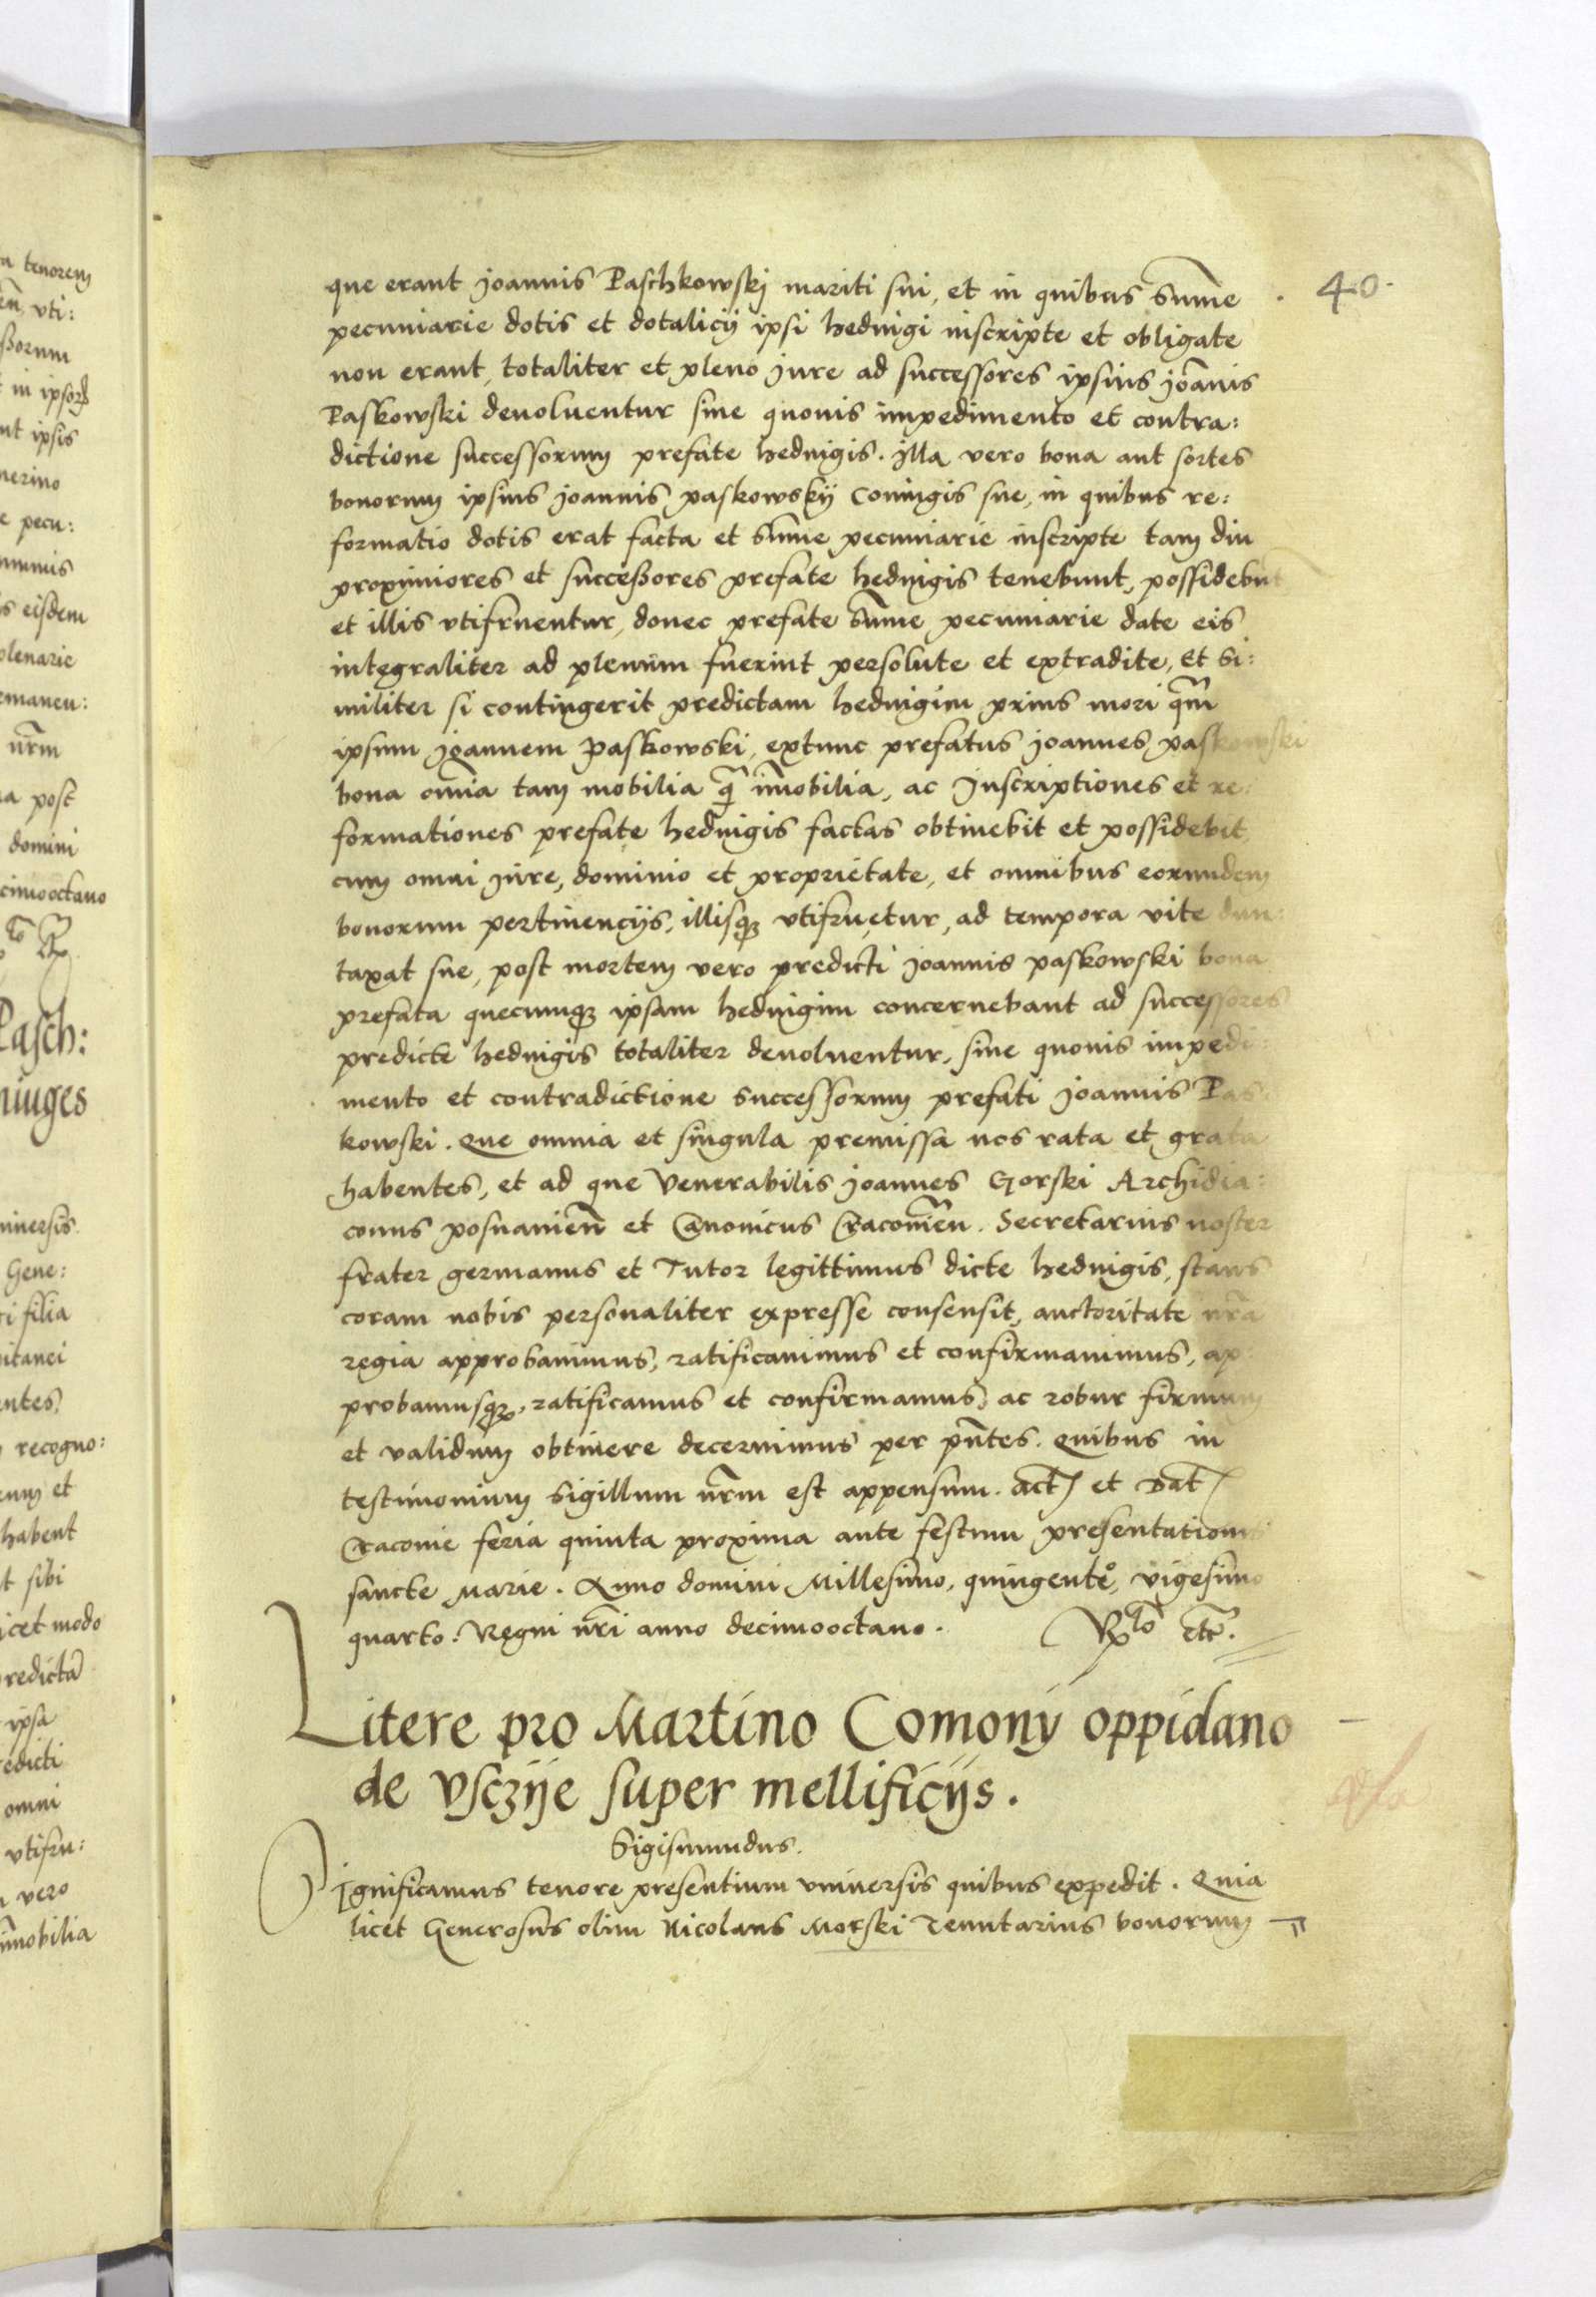 40.
que erant joannis Paschkowskj mariti sui, et in quibus Sum̄e
pecuniarie dotis et dotalicij ipsi hedvigi inscripte et obligate
non erant, totaliter et pleno jure ad successores ipsius joān̄is
Paskowski deuoluentur sine quouis impedimento et contra:
dictione successorum prefate heduigis. jlla vero bona aut sortes
bonorum ipsius joannis paskowskij Coniugis sue, in quibus re:
formatio dotis erat facta et Sum̄e pecuniarie inscripte tam diu
proximiores et succeßores prefate heduigis tenebunt, possidebūt
et illis vtifruentur, donec prefate Sum̄e pecuniarie date eis
integraliter ad plenum fuerint persolute et extradite, Et Si:
militer si contingerit predictam heduigim prius mori q̄m
ipsum joannem Paskowski, extunc prefatus joannes paskowski
bona om̄ia tam mobilia q̄ im̄obilia, ac Inscriptiones et re:
formationes prefate heduigis factas obtinebit et possidebit,
cum omni jure, dominio et proprietate, et omnibus eorundem
bonorum pertinencijs, illisqꝫ vtifruetur, ad tempora vite dun:
taxat sue, post mortem vero predicti joannis paskowski bona
prefata quecunqꝫ ipsam heduigim concernebant ad successores
predicte heduigis totaliter deuoluentur, sine quouis impedi:
mento et contradictione successorum prefati joannis Pas:
kowski. Que omnia et singula premissa nos rata et grata
habentes, et ad que Venerabilis joannes Gorski Archidia:
conus posnanien̄ et Canonicus Cracouien̄. Secretarius noster
frater germanus et Tutor legittimus dicte heduigis, stans
coram nobis personaliter expresse consensit, auctoritate nr̄a
regia approbauimus, ratificauimus et confirmauimus, ap:
probamusqꝫ, ratificamus et confirmamus, ac robur firmum
et validum obtinere decernimus per pn̄tes. Quibus in
testimonium Sigillum nr̄m est appensum. Act et Dat
Cracouie feria quinta proxima ante festum presentationis
sancte Marie. Anno domini Millesimo, quingente⁰, vigesimo
quarto. Regni nr̄i anno decimooctauo. Rꝑlō etc̄.
Litere pro Martino Comony oppidano
de Vsczije super mellificijs.
Sigismundus.
Significamus tenore presentium vniuersis quibus expedit. Quia
licet Generosus olim Nicolaus Morski Tenutarius bonorum